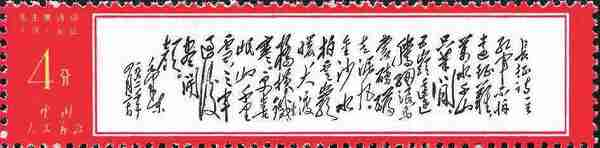 毛主席诗词
4分
中国
人民邮政
长征诗一首
红军不怕
远征难
万水千山
只等闲
五岭逶迤
腾细浪乌
蒙磅礴
走泥丸
金沙水
拍云崖
暖大渡
桥横铁
索寒更喜
岷山千里
雪三军
过后
尽开
颜
毛泽东